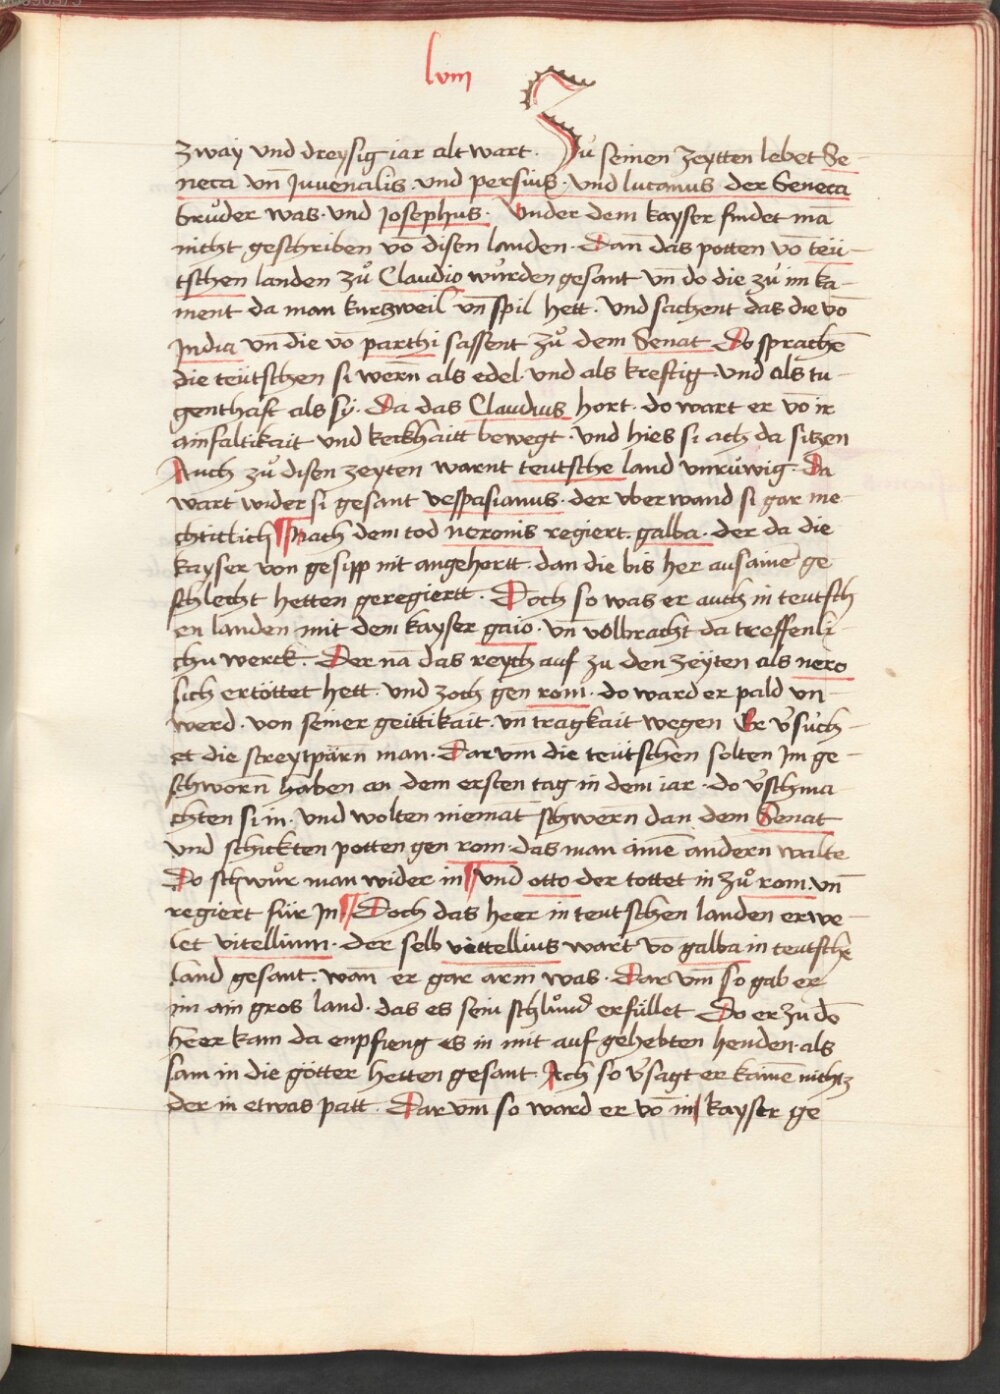 lviii
zway vnd dreysig iar alt wart · Zů seinen zeytten lebet Se-
neca vn̄ Juuenalis · vnd persius · vnd lucanus der Seneca
brůder was · vnd Josephus · Vnder dem kayser findet mā
nicht geschriben vō disen landen · Dan̄ das potten vō teü-
tschen landen zů Claudio wůrden gesant vn̄ do die zů im ka-
ment da man kurtzweil vn̄ spil hett · Vnd sachent das die vō
India vn̄ die vō parthi sassent zů dem Senat Do sprachē
die teütschen si wern̄ als edel · vnd als kreftig · vnd als tu-
genthaft als sÿ · Da das Claudius hort · do wart er vō ir
ainfaltikait vnd keckhaitt bewegt · vnd hies si ach da sitzen
Auch zů disen zeyten warnt teutsche land vnrůwig · Da
wart wider si gesant vespasianus · der vberwand si gar me
chtitlich ¶ Nach dem tod neronis regiert · galba · der da die
kayser von gesipp nit angehortt · dan die bis her aus aine ge
schlecht hetten geregiertt · Doch so was er auch in teutsch
en landen mit dem kayser gaio · vn̄ volbracht da treffenli-
chu werck · Der nā das reych auf zu den zeÿten als nero
sich ertöttet hett · vnd zoch gen rom · do ward er pald vn-
werd · von seiner geittikait · vn̄ tragkait wegen Er v̓sůch-
et die streytpärn̄ man · Dar vm die teütschen solten Im ge-
schworn̄ haben an dem ersten tag in dem iar · do v̓schma
chten si in · vnd wolten niemāt schwern̄ dan dem Senat
vnd schickten potten gen rom · das man ainē andern walte
Do schwůr man wider in ¶ vnd otto der tottet in zů rom · vn̄
regiert für In ¶ Doch das heer in teutschen landen erwe-
let vitellium · der selb vittellius wart vō galba in teutschē
land gesant · wan̄ er gar arm̄ was · Dar vm̄ so gab er
im ain gros land · das es sein schlůnd erfüllet Do er zu dō
heer kam da enpfieng es in mit auf gehebten henden · als
sam in die götter hetten gesant · Ach so v̓sagt er kainē nichtz
der in etwas patt · Dar vm̄ so ward er vō in kayser ge